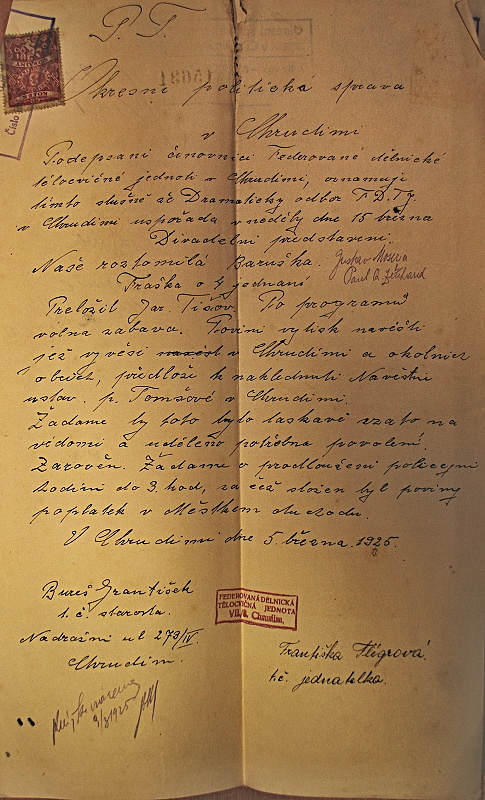 P. T.
Okresní politická správa
v Chrudimi
Podepsaní činovníci Federované dělnické
tělocvičné jednoti v Chrudimi, oznamuje
tímto slušně že Dramatický odbor F.D.T.j.
v Chrudimi uspořádá v neděly dne 15 března
Divadelní představení.
Naše roztomilá Baruška.
Fraška o 4 jednání
Přeložil Jar. Tišov. Po programů
volna zabava. Povini vytisk navěšti
jež vyvěsi v Chrudimi a okolnich
obcích, předlože k nahlednuti Navěštni
ustav. p. Tomšově v Chrudimi.
Žádame by toto bylo laskavě vzato na
vědomí a uděleno potřebna povolení
Zarověn. Žádame o prodloužení policejní
hodini do 3. hod, za čež složen byl poviny
poplatek v Městkém duchodu.
V Chrudimi dne 5. března. 1925.
Bureš František
t. č. starosta.
Nadražni ul 273/IV.
Chrudim.
FEDEROVANÁ DĚLNICKÁ
TĚLOCVIČNÁ JEDNOTA
Chrudim.
Františka Flígrová.
tč. jednatelka.
9/3 1925
Číslo